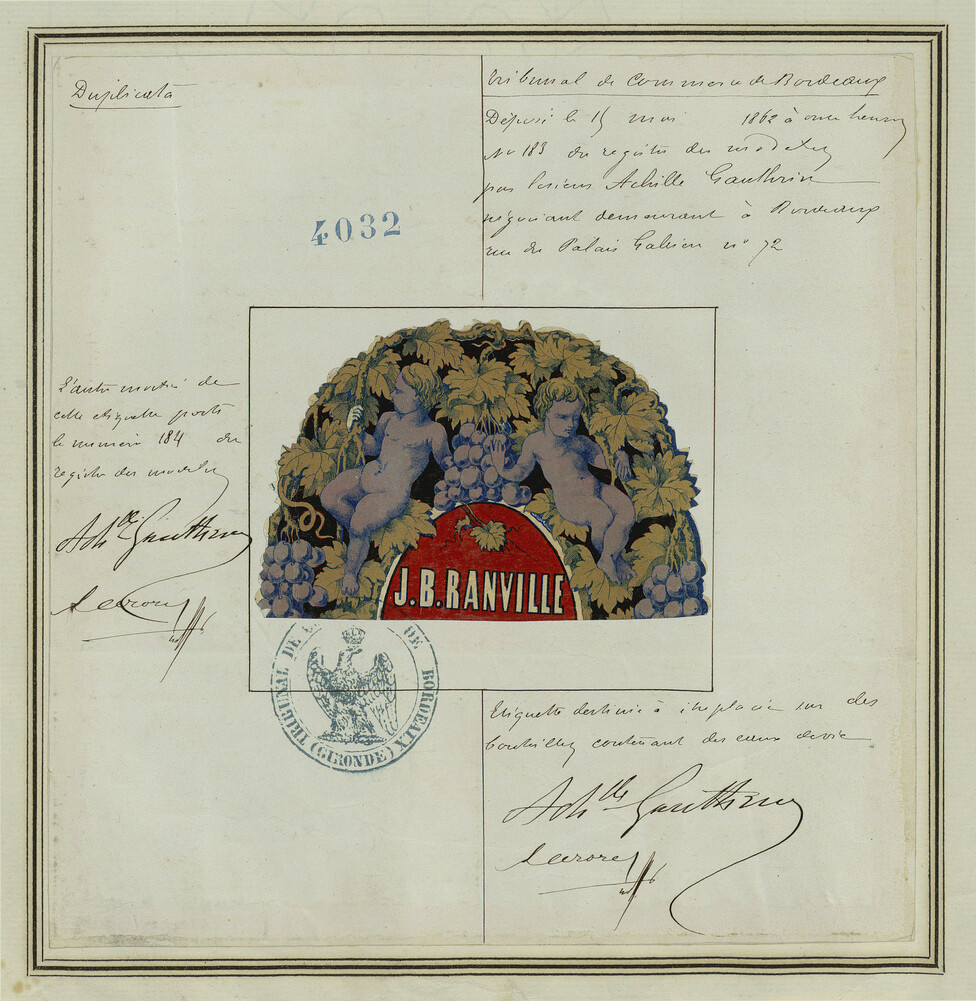 Duplicata
Tribunal de Commerce de Bordeaux
Déposé le 15 mai 1862 à onze heures
No 183 du registre des modèles
par le sieur Achille Gauthrin
négociant demeurant à Bordeaux
rue du Palais Galien n° 72
4032
L'autre moitié de
cette étiquette porte
le numéro 184 du
registre des modèles
Ach^lle Gauthrin
J.B.RANVILLE
TRIBUNAL DE DE BORDEAUX
(GIRONDE)
Etiquette destinée à être placée sur des
bouteilles contenant des eaux de vie
Ach^lle Gauthrin